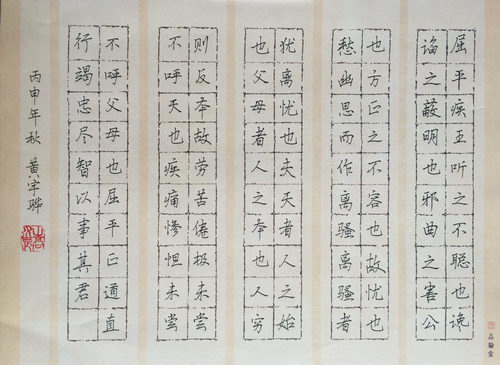 屈平疾王听之不聪也谗
谄之蔽明也邪曲之害公
也方正之不容也故忧也
愁幽思而作离骚离骚者
犹离忧也夫天者人之始
也父母者人之本也人穷
则反本故劳苦倦极未尝
不呼天也疾痛惨怛未尝
不呼父母也屈平正道直
行竭忠尽智以事其君
丙申年秋 黄宇
品翰堂